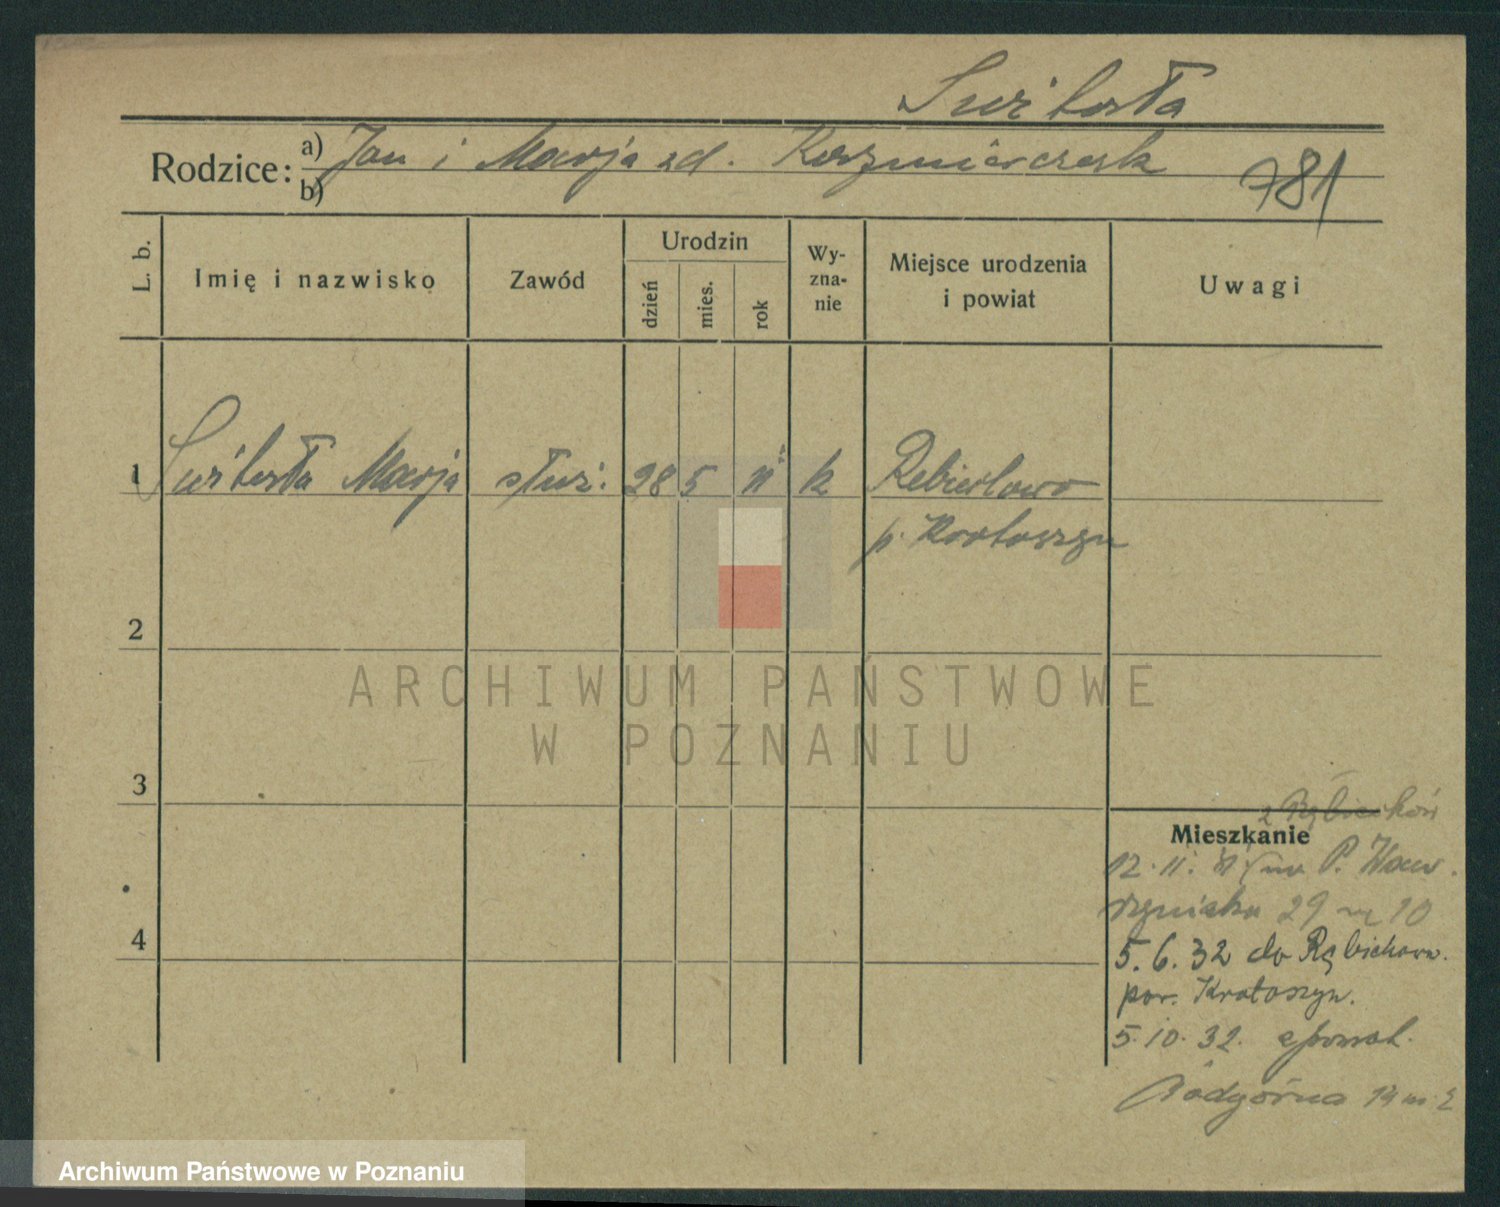 Świtała
Rodzice: a) Jan i Marja zd. Kaźmierczak
b)
781
L. b.
Imię i nazwisko
Zawód
Urodzin
dzień
mies.
rok
Wy-
zna-
nie
Miejsce urodzenia
i powiat
Uwagi
1 Marja służ. 28 5 11 k
p. Krotoszyn
2
3
4
ARCHIWUM PAŃSTWOWE
W POZNANIU
Mieszkanie
12. 11. P. Waw
rzyniaka 29 m 10
5. 6. 32 do
pow. Krotoszyn.
5. 10. 32.
Podgórna
Archiwum Państwowe w Poznaniu